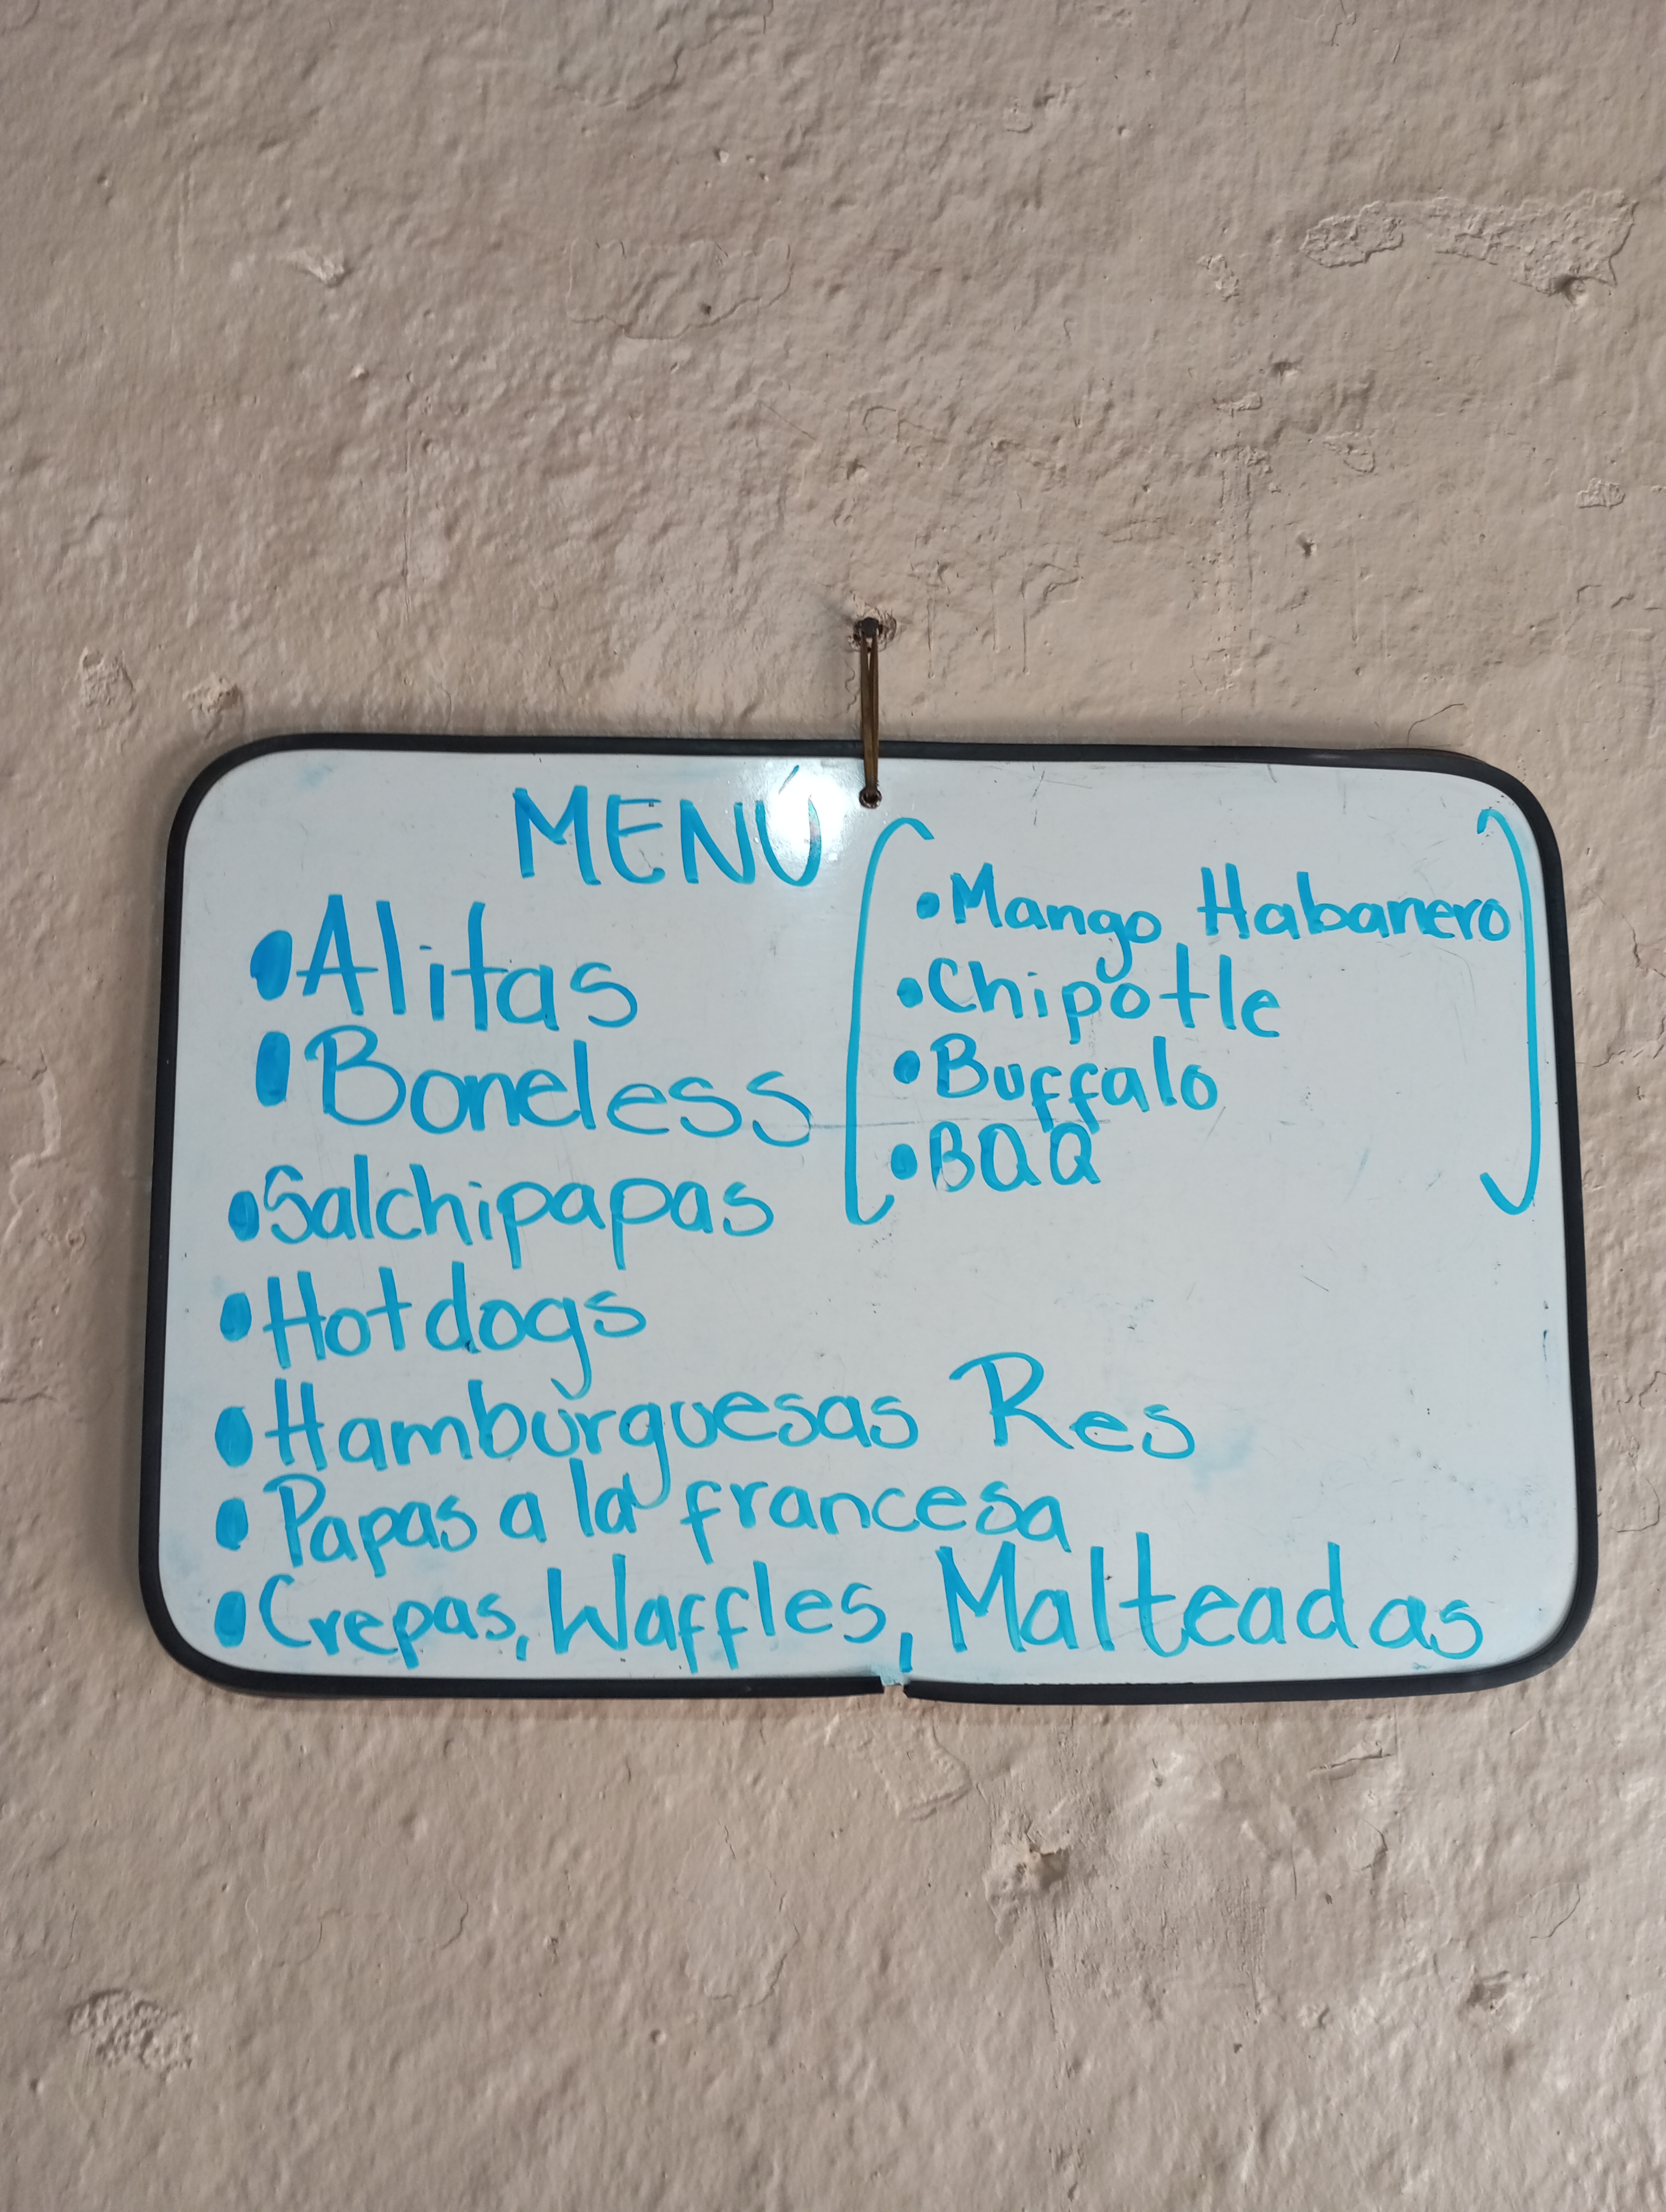 MENÚ
•Alitas
•Boneless
(•Mango Habanero
•Chipotle
•Buffalo
•BQQ)
•Salchipapas
•Hotdogs
•Hamburguesas Res
•Papas a la francesa
•Crepas, Waffles, Malteadas